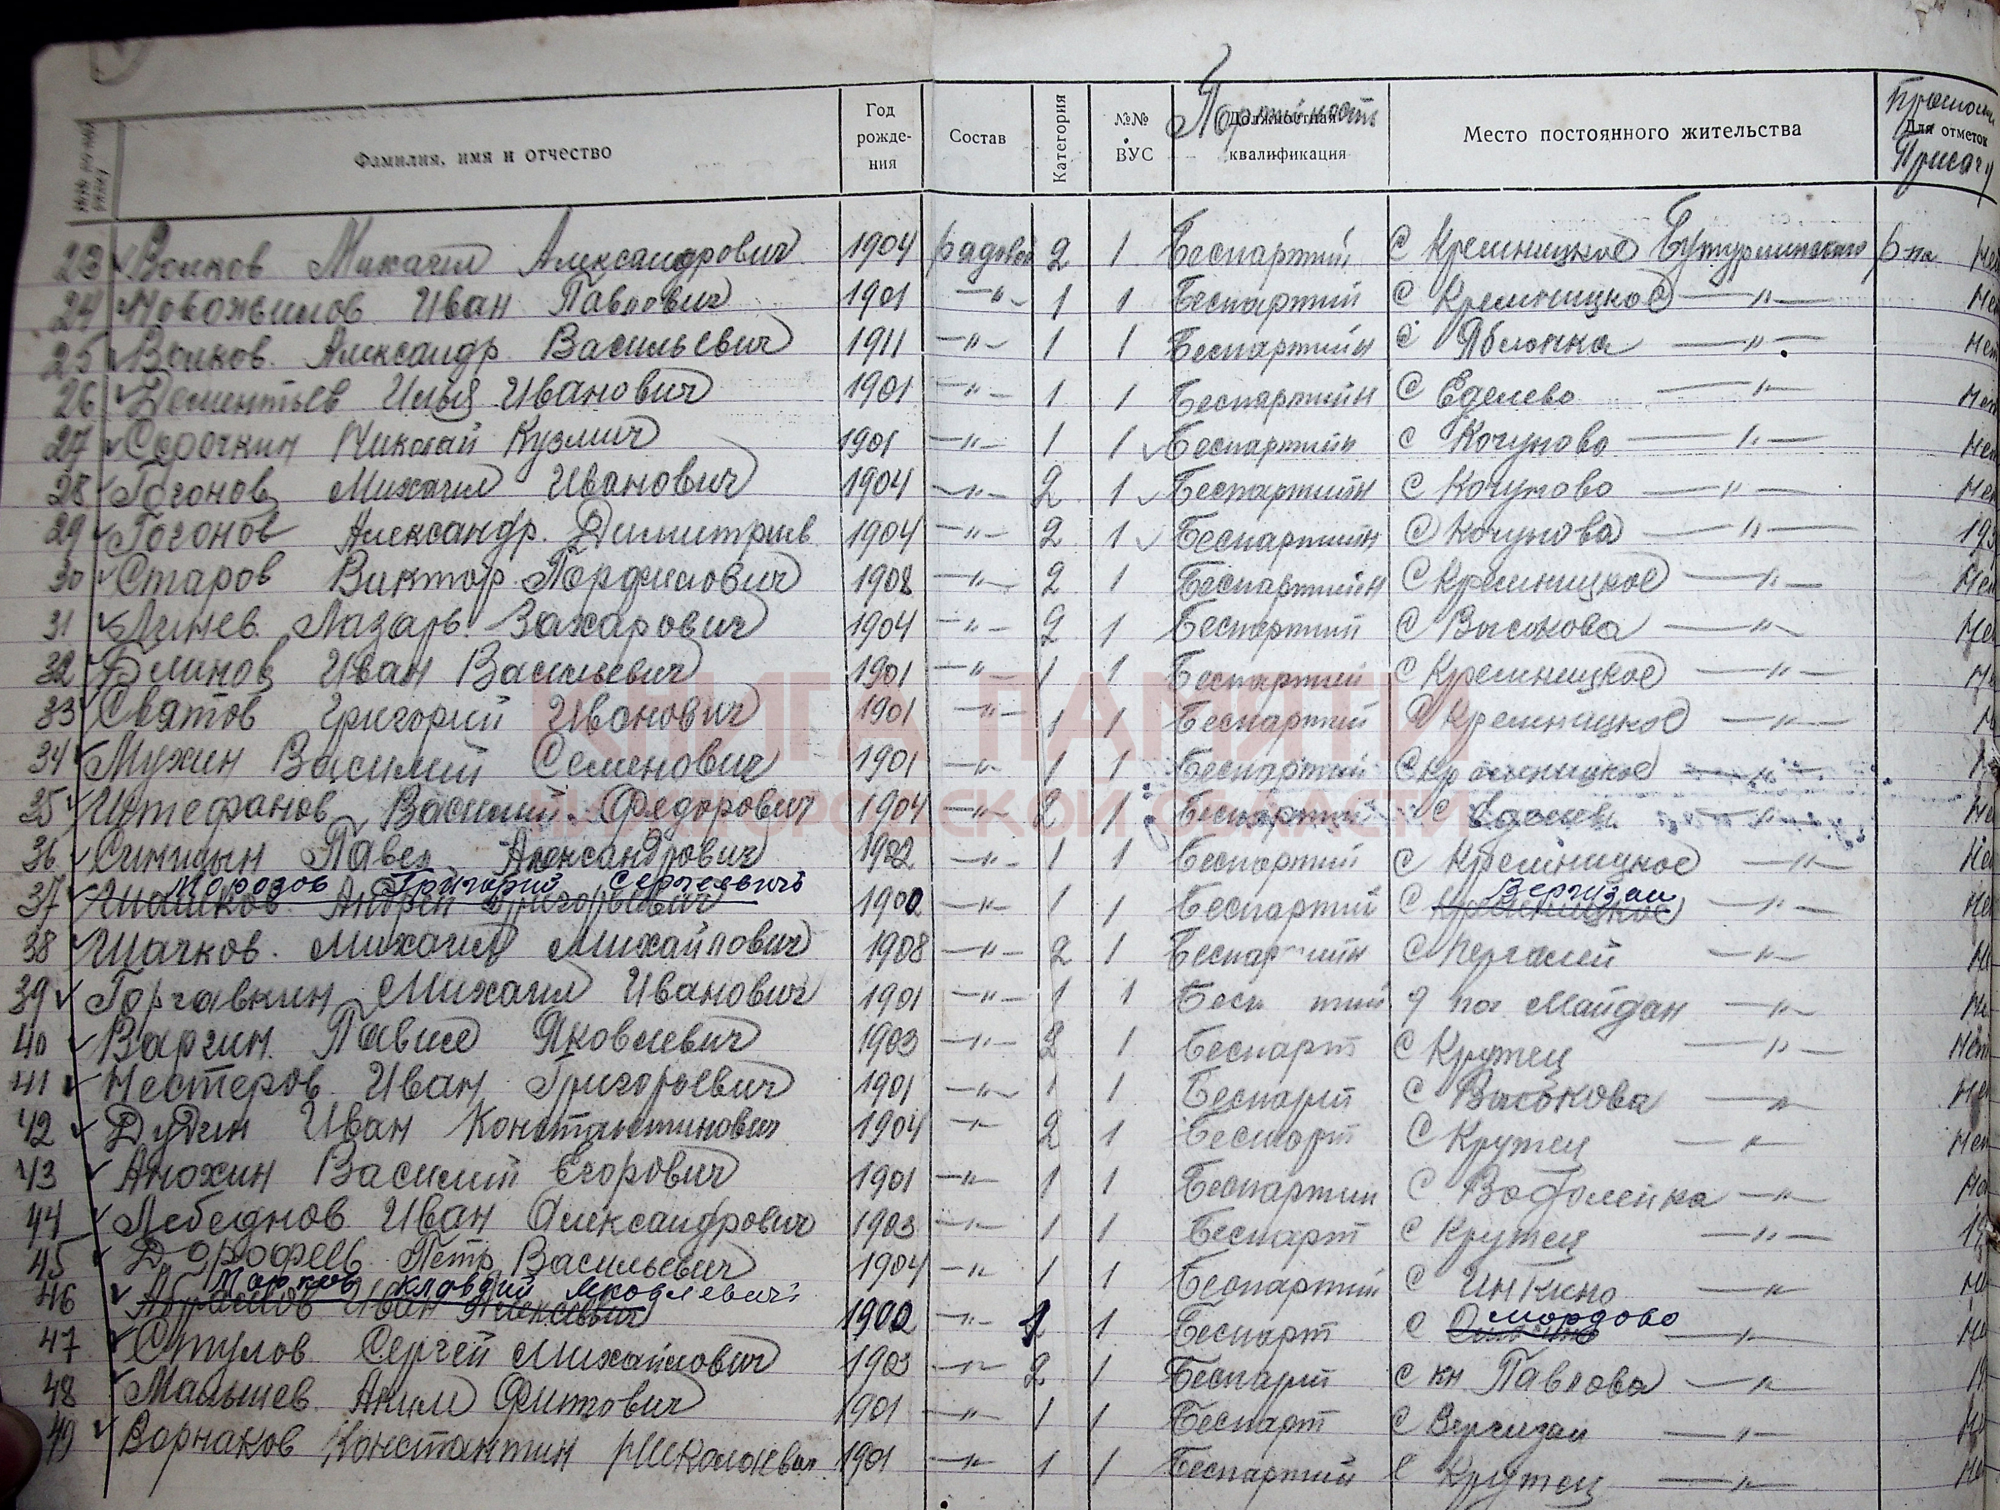 Партийность
Фамилия, имя и отчество Год рожде- ния Состав Категория №№ ВУС Должностная квалификация Место постоянного жительства Для отметок
Присягу
23 Волков Михаил Александрович 1904 рядовой 2 1 Беспартий с Кременицкое Бутурлинского р-на
24 Новожилов Иван Павлович 1901 —"— 1 1 Беспартий с Кременицкое —"—
25 Волков Александр Васильевич 1911 —"— 1 1 Беспартийн с Яблонка —"— нет
26 Дементьев Илья Иванович 1901 —"— 1 1 Беспартийн с Еделево —"— нет
27 Сорочкин Николай Кузмич 1901 —"— 1 1 Беспартийн с Кочуново —"— нет
28 Гогонов Михаил Иванович 1904 —"— 2 1 Беспартийн с Кочуново —"—
29 Гогонов Александр Димитрив 1904 —"— 2 1 Беспартийн с Кочунова —"— 193
30 Старов Виктор Порфилович 1908 —"— 2 1 Беспартийн с Кременицкое —"—
31 Линев Лазарь Захарович 1904 —"— 2 1 Беспартий с Высокова —"—
32 Блинов Иван Васильевич 1901 —"— 1 1 Беспартий с Кременицкое —"—
33 Святов Григорий Иванович 1901 —"— 1 1 Беспартий с Кременицкое —"—
34 Мухин Василий Семенович 1901 —"— 1 1 Беспартий с Кременицкое —"—
35 Штефанов Василий Федорович 1904 —"— 2 1 Беспартий с —"—
36 Синицын Павел Александрович 1902 —"— 1 1 Беспартий с Кременицкое —"—
Морозов Григорий Сергеевичъ Вергизаи
37 Андрей Григорьевич 1900 —"— 1 1 Беспартий с Кременицкое —"—
38 Шачков Михаил Михайлович 1908 —"— 2 1 с —"—
39 Горчавкин Михаил Иванович 1901 —"— 1 1 Майдан —"—
40 Варгин Павил Яковлевич 1903 —"— 2 1 Беспарт с Крутец —"— нет
41 Нестеров Иван Григорьевич 1901 —"— 1 1 Беспарт с Высокова —"—
42 Дудин Иван Константинович 1904 —"— 2 1 Беспарт с Крутец —"— нет
43 Анохин Василий Егорович 1901 —"— 1 1 Беспартий с —"—
44 Лебеднов Иван Александрович 1903 —"— 1 1 Беспарт с Крутец —"—
45 Дорофеев Петр Васильевич 1904 —"— 1 1 Беспартий с Инкино —"—
Клавдий мордово
46 Абрамов Иван Алексевич 1900 —"— 1 Беспарт с —"—
47 Стулов Сергей Михайлович 1903 —"— 2 1 Беспарт с кн Павлова —"—
48 Малышев Аким Фитович 1901 —"— 1 1 Беспарт с Вергизаи —"—
49 Ворнаков Константин Николаевич 1901 —"— 1 1 Беспартий с Крутец —"—
КНИГА ПАМЯТИ
НИЖЕГОРОДСКОЙ ОБЛАСТИ